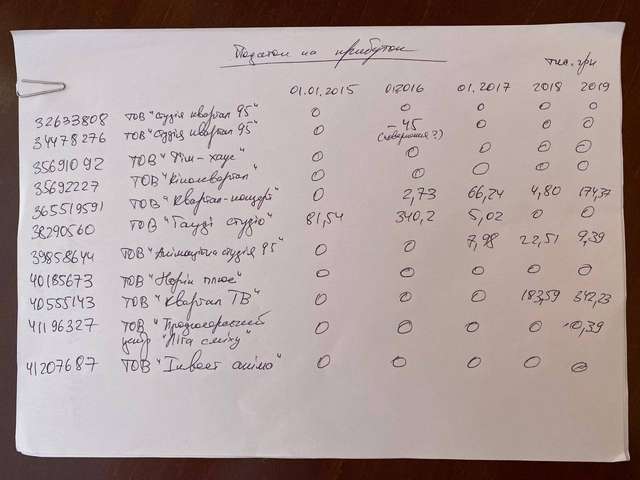 Податок на прибуток
тис. грн
01.01.2015 01.2016 01.2017 2018 2019
32633808 ТОВ "Студія квартал 95" 0 0 0 0 0
34478276 ТОВ "Студія квартал 95" 0 -45 0 0 0
(повернення?)
35691092 ТОВ "Фім-хаус" 0 0 0 0 0
35692227 ТОВ "Кіноквартал" 0 0 0 0 0
365519591 ТОВ "Квартал-концерт" 0 2,73 66,24 4,80 174,37
38290560 ТОВ "Гауді студіо" 81,54 340,2 5,02 0 0
39858644 ТОВ "Анімаційна студія 95" 0 0 7,98 22,51 9,39
40185673 ТОВ "Норін плюс" 0 0 0 0 0
40555143 ТОВ "Квартал ТВ" 0 0 0 183,59 342,23
41196327 ТОВ "Продюсерський 0 0 0 0 0,39
центр "Ліга сміху"
41207687 ТОВ "Інвест аніма" 0 0 0 0 0